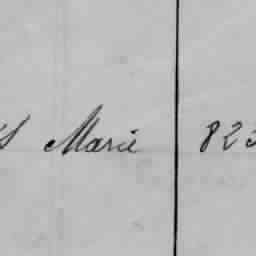 Marie 82